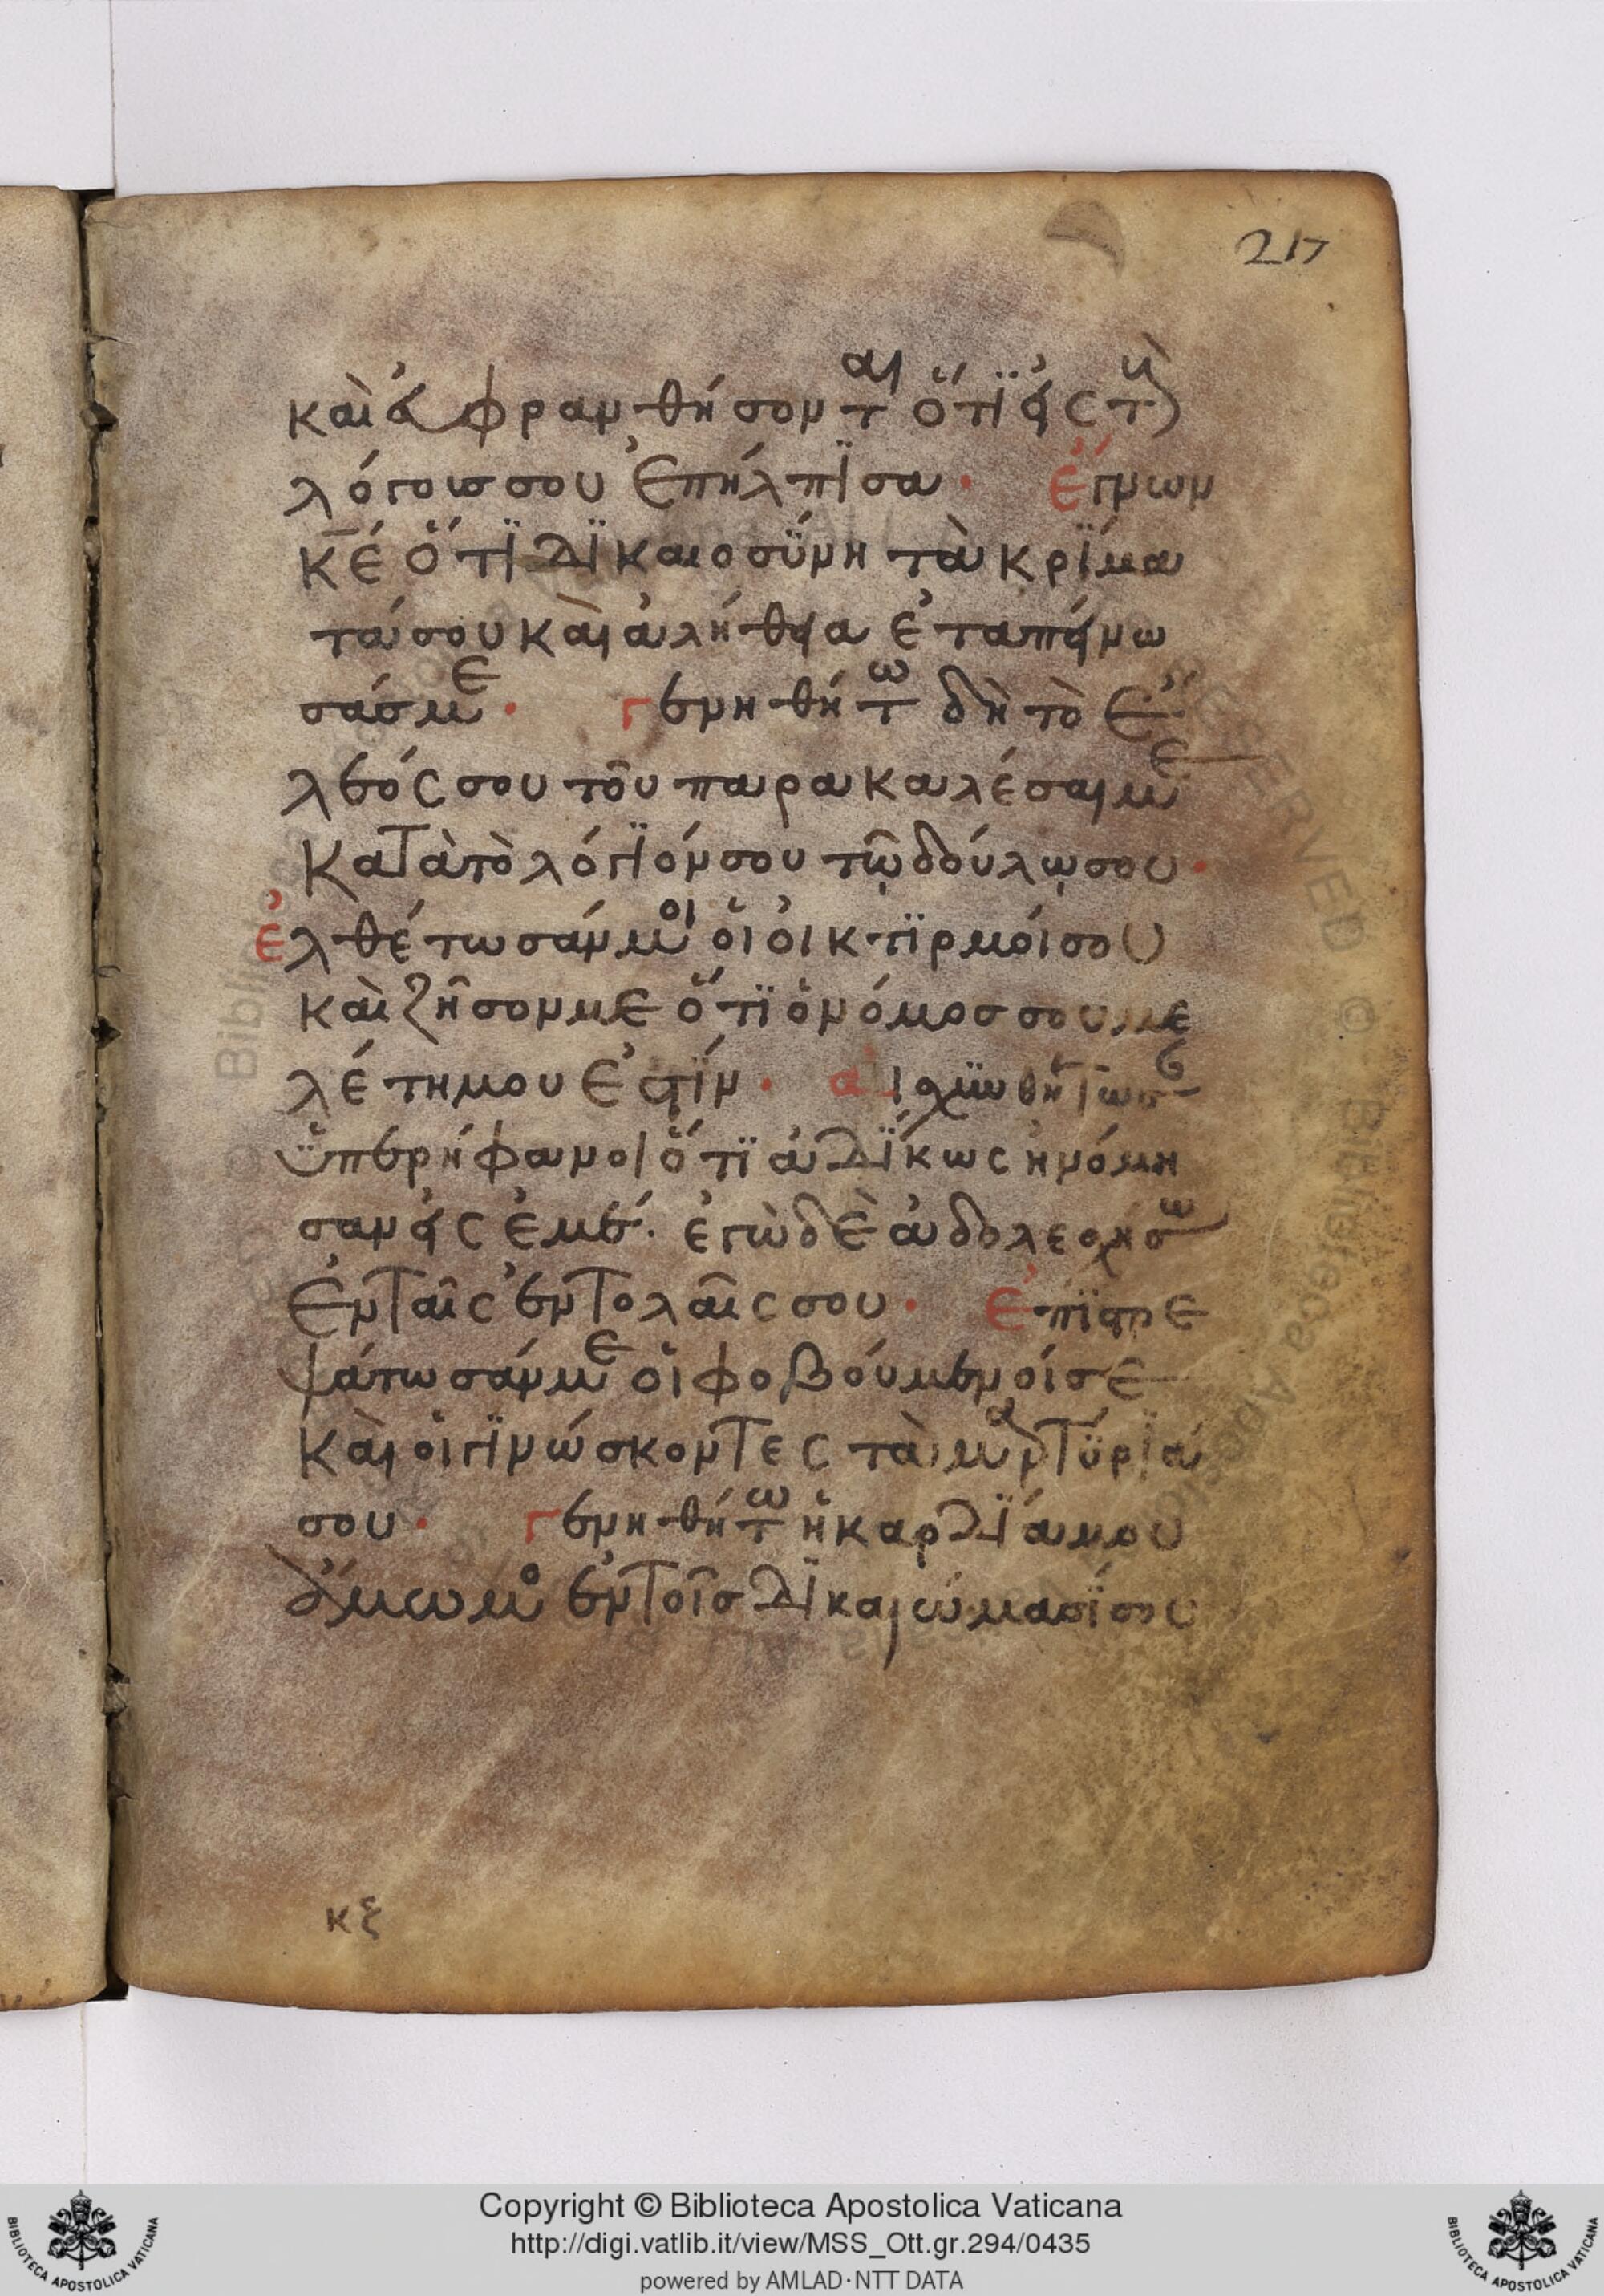 217
καὶ εὐφρανθήσονται ὅτϊ εἰς τοὺ
λόγουσ σου ἐπήλπϊσα· ἔγνων
κ̅ε̅ ὅτϊ δϊκαιοσΰνη τὰ κρΐμα
τά σου καὶ ἀληθεία ἐταπείνω
σάσ με· γενηθήτω δὴ τὸ ἔ
λεός σου τοῦ παρακαλέσαι με
κατὰ τὸ λόγϊόν σου τῷ δούλῳ σου·
ἐλθέτωσάν μοι οἱ οἰκτϊρμοί σου
καὶ ζήσον με ὅτϊ ὁ νόμοσ σου με
λέτη μου ἐστΐν· αἰσχϋνθήτωσαν
ὑπερήφανοι ὅτϊ ἀδΐκως ἠνόμη
σαν εἰς ἐμέ· ἐγὼ δὲ ἀδολεσχήσω
ἐν ταῖς ἐντολαῖς σου· ἐπϊστρε
ψάτωσάν με οἱ φοβούμενοί σε
καὶ οἱ γϊνώσκοντες τὰ μαρτϋρϊά
σου· γενηθήτω ἡ καρδΐα μου
ἄμωμο ἐν τοῖσ δϊκαιώμασΐ σου
κξ
Copyright © Biblioteca Apostolica Vaticana
http://digi.vatlib.it/view/MSS_Ott.gr.294/0435
powered by AMLAD·NTT DATA
BIBLIOTECA APOSTOLICA VATICANA
BIBLIOTECA APOSTOLICA VATICANA